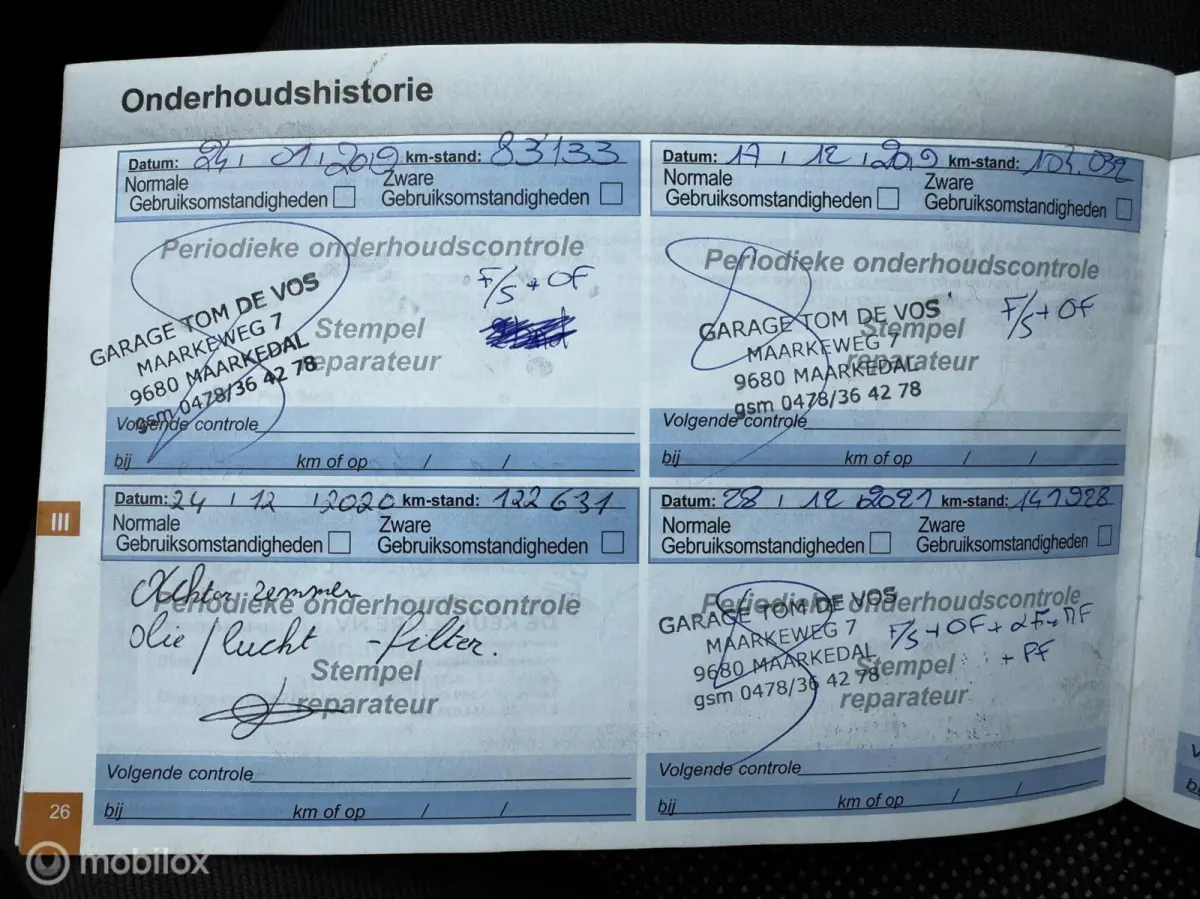 Onderhoudshistorie
Datum: 24 / 01 / 2019 km-stand: 83133
Normale Gebruiksomstandigheden
Zware Gebruiksomstandigheden
Periodieke onderhoudscontrole
F/S + OF
GARAGE TOM DE VOS
MAARKEWEG 7
9680 MAARKEDAL
gsm 0478/36 42 78
Stempel
reparateur
Volgende controle
bij km of op / /
Datum: 17 / 12 / 2019 km-stand: 104.032
Normale Gebruiksomstandigheden
Zware Gebruiksomstandigheden
Periodieke onderhoudscontrole
F/S + OF
GARAGE TOM DE VOS
MAARKEWEG 7
9680 MAARKEDAL
gsm 0478/36 42 78
Stempel
reparateur
Volgende controle
bij km of op / /
III
Datum: 24 / 12 / 2020 km-stand: 122 631
Normale Gebruiksomstandigheden
Zware Gebruiksomstandigheden
Achter remmen
Periodieke onderhoudscontrole
olie / lucht - filter.
Stempel
reparateur
Volgende controle
bij km of op / /
Datum: 28 / 12 2021 km-stand: 141928
Normale Gebruiksomstandigheden
Zware Gebruiksomstandigheden
Periodieke onderhoudscontrole
GARAGE TOM DE VOS
MAARKEWEG 7
9680 MAARKEDAL
gsm 0478/36 42 78
F/S + OF +
+ PF
Stempel
reparateur
Volgende controle
bij km of op / /
26
mobilox